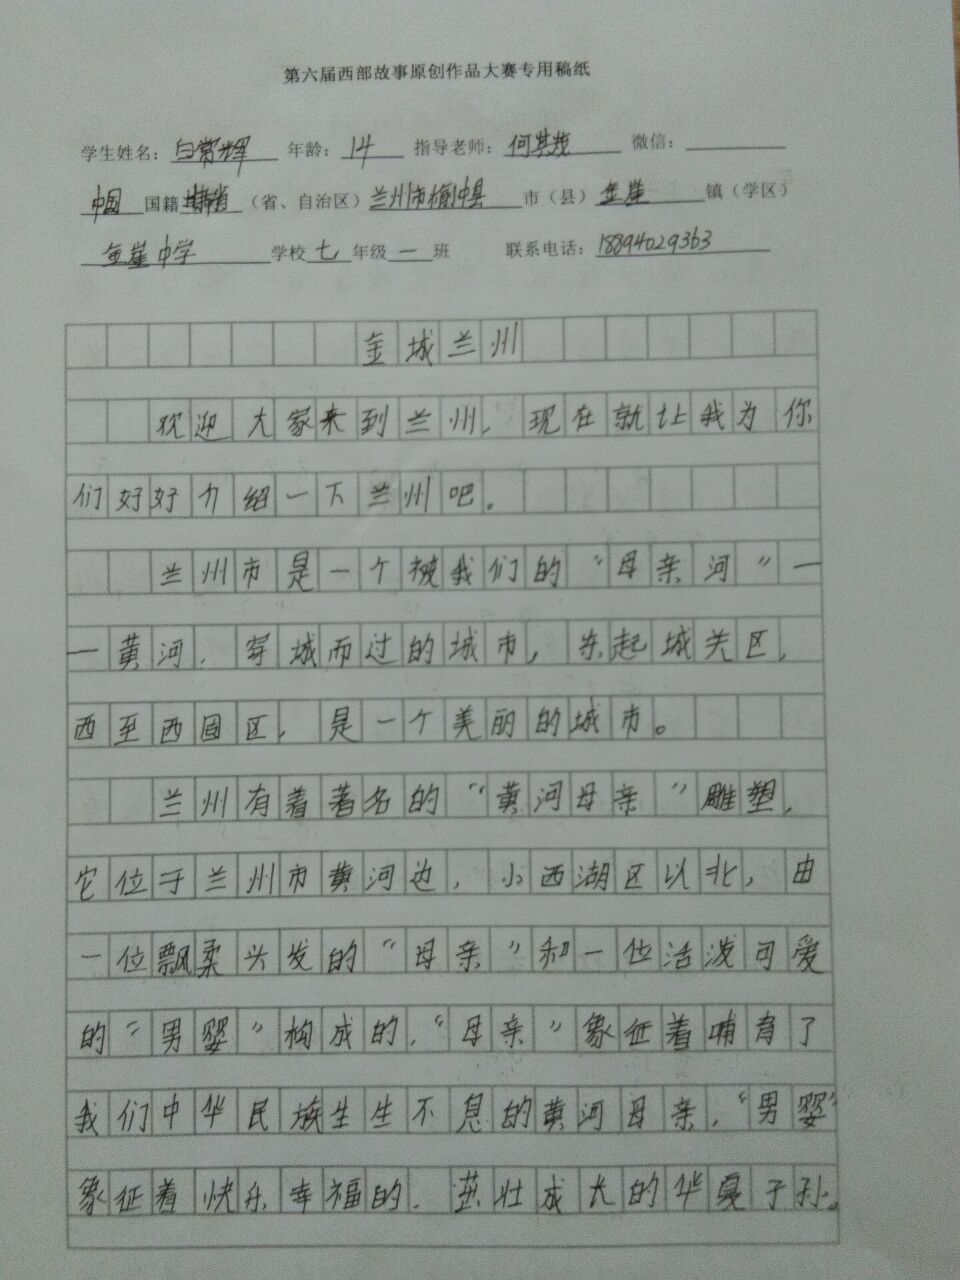 第六届西部故事原创作品大赛专用稿纸
学生姓名：白常辉 年龄：14 指导老师：何其 微信：
中国 国籍 （省、自治区）兰州市榆中县 市（县）金崖 镇（学区）
金崖中学 学校 七 年级 一 班 联系电话：18894029363
金城兰州
欢迎大家来到兰州，现在就让我为你
们好好介绍一下兰州吧。
兰州市是一个被我们的“母亲河”—
—黄河，穿城而过的城市，东起城关区，
西至西固区，是一个美丽的城市。
兰州有着著名的“黄河母亲”雕塑，
它位于兰州市黄河边，小西湖区以北，由
一位飘柔头发的“母亲”和一位活泼可爱
的“男婴”构成的，“母亲”象征着哺育了
我们中华民族生生不息的黄河母亲，“男婴”
象征着快乐幸福的，茁壮成长的华夏子孙。